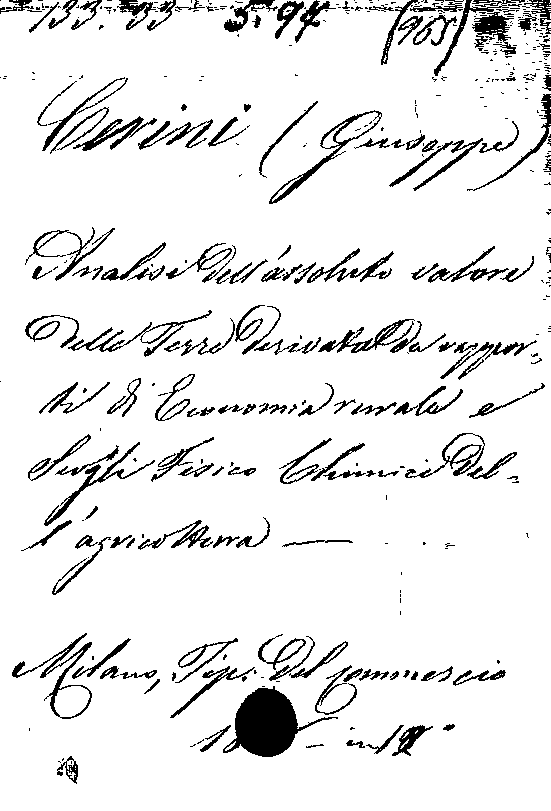 133. 33 5. 94 (965)
Cerini (Giuseppe)
Analisi dell'assoluto valore
delle Terre derivata da rappor-
ti di Economia rurale e
sugli Fisico Chimici del-
l'agricoltura —
Milano, Tip. del Commercio
18 — in